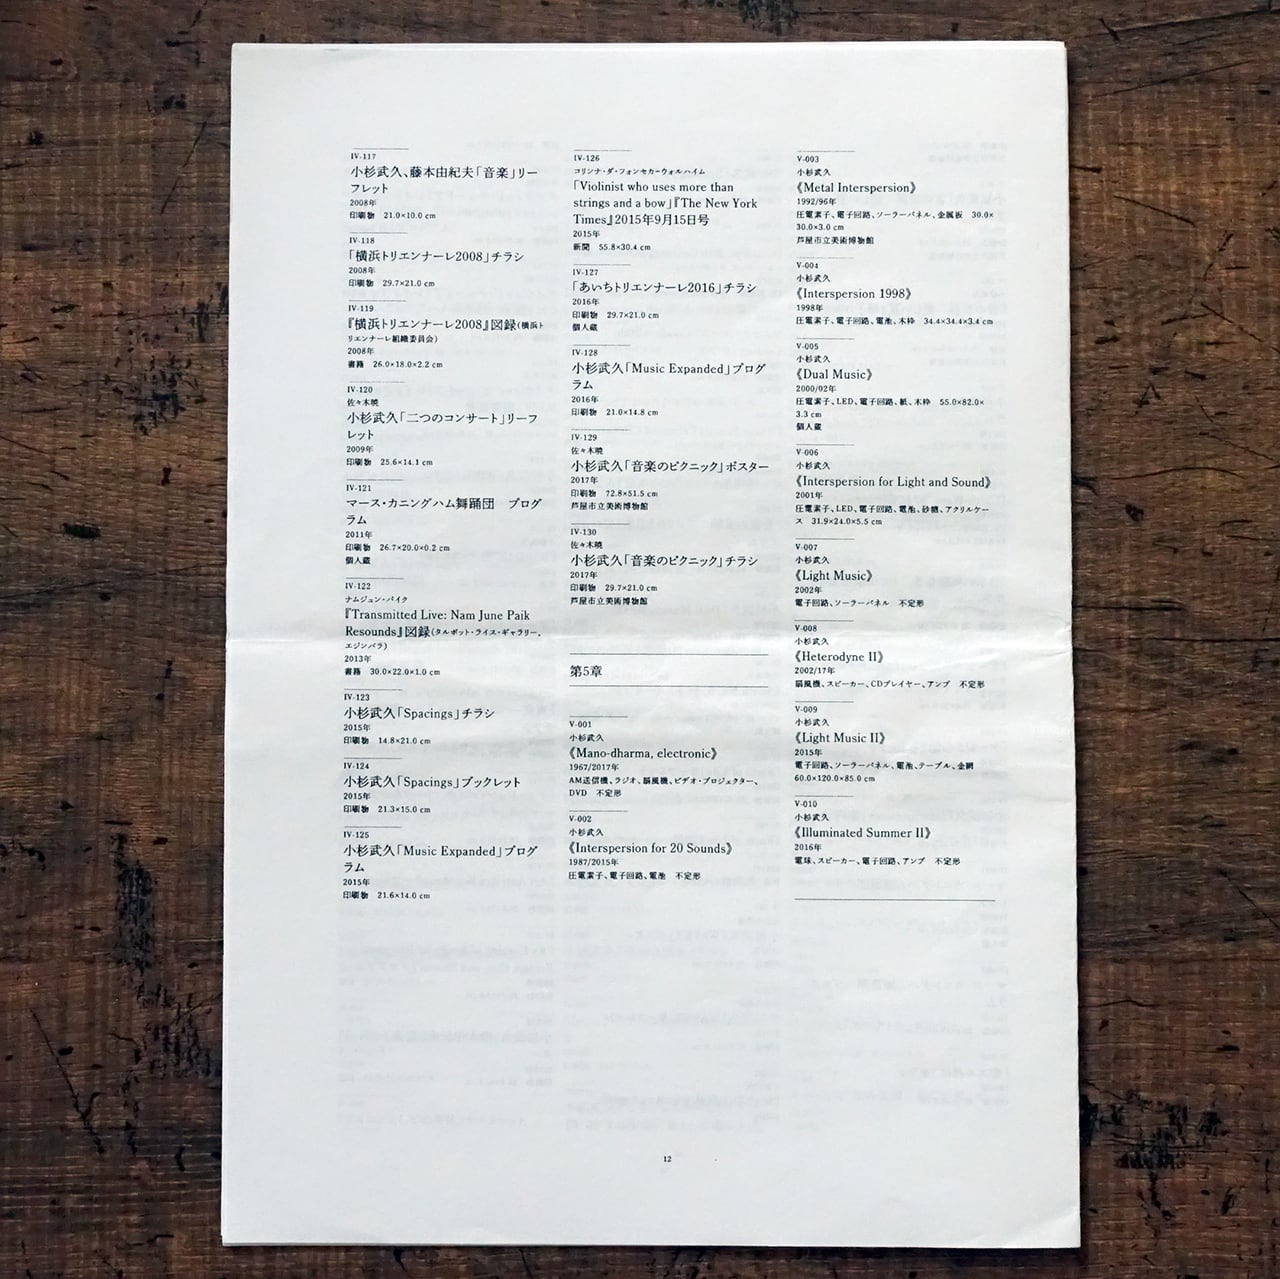 IV-117
小杉武久、藤本由紀夫「音楽」リー
フレット
2008年
印刷物　21.0×10.0 cm
IV-118
「横浜トリエンナーレ2008」チラシ
2008年
印刷物　29.7×21.0 cm
IV-119
『横浜トリエンナーレ2008』図録(横浜ト
リエンナーレ組織委員会)
2008年
書籍　26.0×18.0×2.2 cm
IV-120
佐々木暁
小杉武久「二つのコンサート」リーフ
レット
2009年
印刷物　25.6×14.1 cm
IV-121
マース・カニングハム舞踊団　プログ
ラム
2011年
印刷物　26.7×20.0×0.2 cm
個人蔵
IV-122
ナムジュン・パイク
『Transmitted Live: Nam June Paik
Resounds』図録(タルボット・ライス・ギャラリー、
エジンバラ)
2013年
書籍　30.0×22.0×1.0 cm
IV-123
小杉武久「Spacings」チラシ
2015年
印刷物　14.8×21.0 cm
IV-124
小杉武久「Spacings」ブックレット
2015年
印刷物　21.3×15.0 cm
IV-125
小杉武久「Music Expanded」プログ
ラム
2015年
印刷物　21.6×14.0 cm
IV-126
コリンナ・ダ・フォンセカーウォルハイム
「Violinist who uses more than
strings and a bow」『The New York
Times』2015年9月15日号
2015年
新聞　55.8×30.4 cm
IV-127
「あいちトリエンナーレ2016」チラシ
2016年
印刷物　29.7×21.0 cm
個人蔵
IV-128
小杉武久「Music Expanded」プログ
ラム
2016年
印刷物　21.0×14.8 cm
IV-129
佐々木暁
小杉武久「音楽のピクニック」ポスター
2017年
印刷物　72.8×51.5 cm
芦屋市立美術博物館
IV-130
佐々木暁
小杉武久「音楽のピクニック」チラシ
2017年
印刷物　29.7×21.0 cm
芦屋市立美術博物館
第5章
V-001
小杉武久
《Mano-dharma, electronic》
1967/2017年
AM送信機、ラジオ、扇風機、ビデオ・プロジェクター、
DVD　不定形
V-002
小杉武久
《Interspersion for 20 Sounds》
1987/2015年
圧電素子、電子回路、電池　不定形
V-003
小杉武久
《Metal Interspersion》
1992/96年
圧電素子、電子回路、ソーラーパネル、金属板　30.0×
30.0×3.0 cm
芦屋市立美術博物館
V-004
小杉武久
《Interspersion 1998》
1998年
圧電素子、電子回路、電池、木枠　34.4×34.4×3.4 cm
V-005
小杉武久
《Dual Music》
2000/02年
圧電素子、LED、電子回路、紙、木枠　55.0×82.0×
3.3 cm
個人蔵
V-006
小杉武久
《Interspersion for Light and Sound》
2001年
圧電素子、LED、電子回路、電池、砂糖、アクリルケー
ス　31.9×24.0×5.5 cm
V-007
小杉武久
《Light Music》
2002年
電子回路、ソーラーパネル　不定形
V-008
小杉武久
《Heterodyne II》
2002/17年
扇風機、スピーカー、CDプレイヤー、アンプ　不定形
V-009
小杉武久
《Light Music II》
2015年
電子回路、ソーラーパネル、電池、テーブル、金網
60.0×120.0×85.0 cm
V-010
小杉武久
《Illuminated Summer II》
2016年
電球、スピーカー、電子回路、アンプ　不定形
12